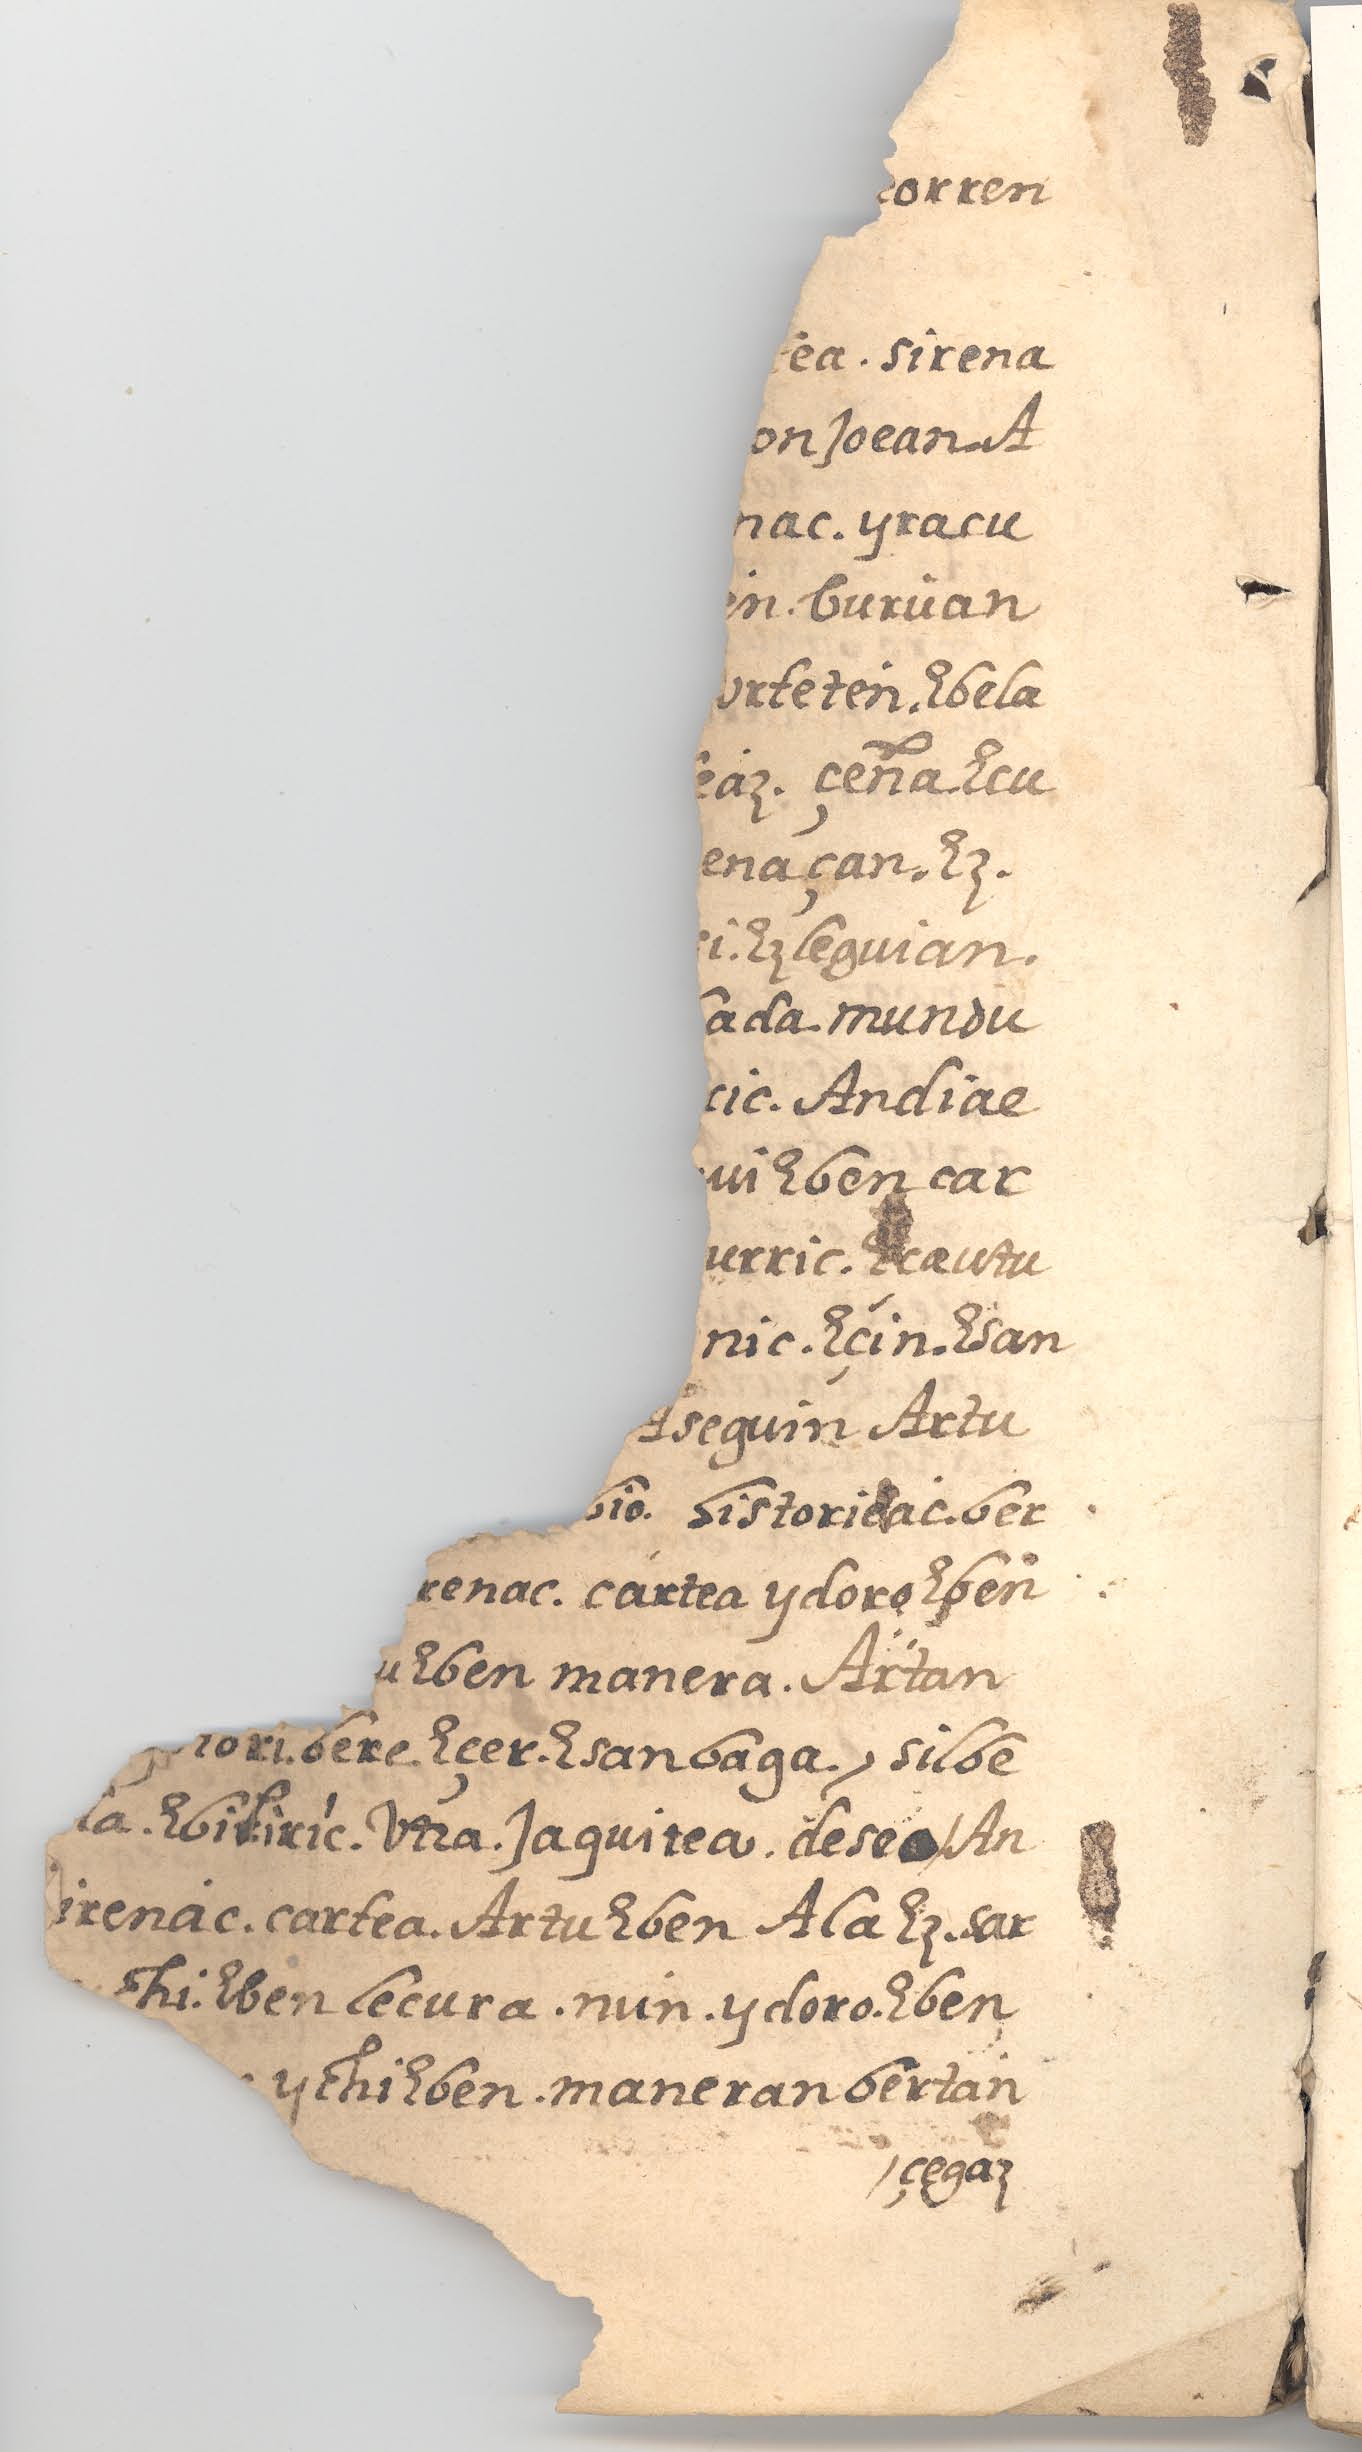 orren
tea. sirena
on Joean. A
nac. yracu
in. buruan
urteten. Ebela
eaz. çeña. Ecu
ena çan. Ez.
i. Ez leguian.
bada. mundu
cic. Andiae
ui Eben car
urric. Ecautu
nic. Eçin. Esan
Aseguin Artu
bio. historiac. ber
renac. cartea ydoro Eben
u Eben manera. Artan
tori. bere. Eçer. Esan baga., silbe
la. Utra. Jaquitea. deseo / An
irenac. cartea. Artu Eben Ala Ez. sar
thi. Eben lecura. nun. ydoro. Eben
ythi Eben. maneran bertan
/ çegaz